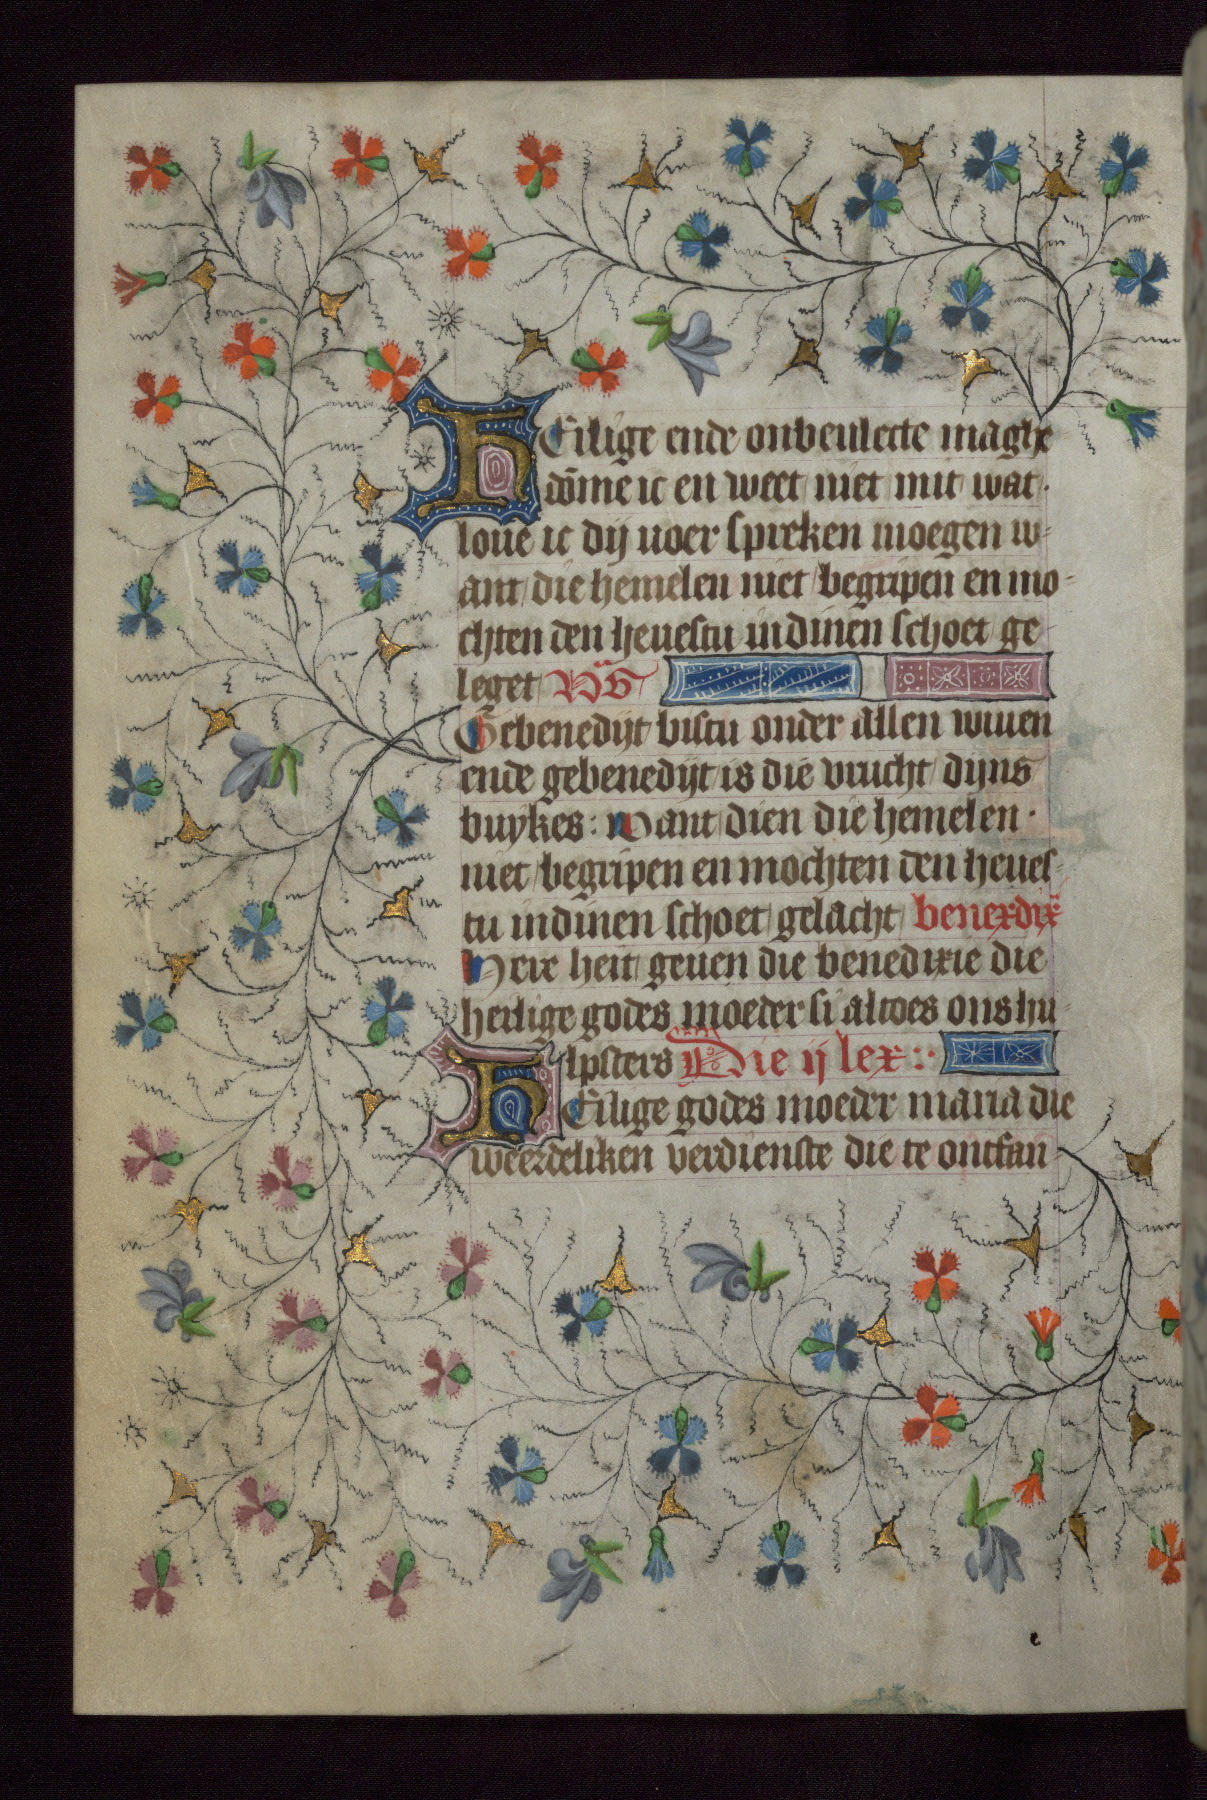 HEilige ende onbeulecte maghe
dōme ic en weet niet mit wat·
loue ic dij uoer spreken moegen w-
ant die hemelen niet begripen en mo-
chten den heuestu in dinen schoet ge-
leget
Gebenedijt bistu onder allen wiuen
ende gebenedijt is die vrucht dijns
buykes: want dien die hemelen·
niet begripen en mochten den heues-
tu in dinen schoet gelacht benexdix
Here heit geuen die benedixie die
heilige godes moeder si altoes ons hu
lpsters Die ij lex:·
HEilige godes moeder maria die
weerdeliken verdienste die te ontfan